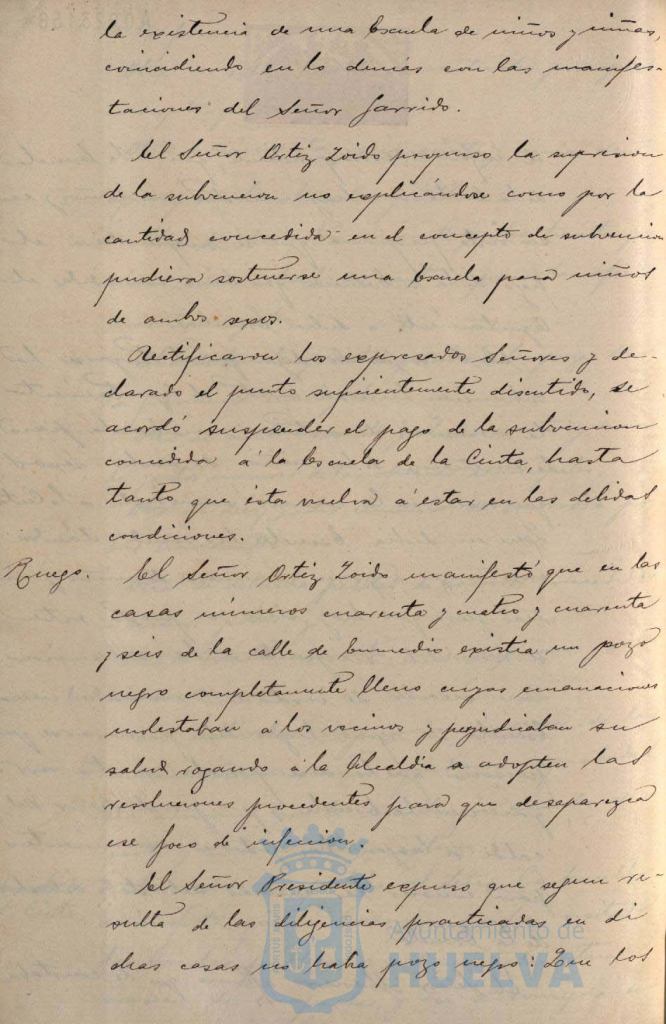 la existencia de una Escuela de niños y niñas,
coincidiendo en lo demás con las manifes-
taciones del Señor Garrido.
El Señor Ortiz Zoido propuso la supresion
de la subvencion no esplicándose como por la
cantidad concedida en el concepto de subvencion
pudiera sostenerse una Escuela para niños
de ambos sexos.
Rectificaron los expresados Señores y de-
clarado el punto suficientemente discutido, se
acordó suspender el pago de la subvencion
concedida á la Escuela de la Cinta, hasta
tanto que ésta vuelva á estar en las debidas
condiciones.
Ruego. El Señor Ortiz Zoido manifestó que en las
casas números cuarenta y cuatro y cuarenta
y seis de la calle de Enmedio existia un pozo
negro completamente lleno cuyas emanaciones
molestaban á los vecinos y perjudicaban su
salud rogando á la Alcaldía se adopten las
resoluciones procedentes para que desaparezca
ese foco de infeccion.
El Señor Presidente expuso que segun re-
sulta de las diligencias practicadas en di
chas casas no había pozo negro: Que los
Ayuntamiento de
HUELVA